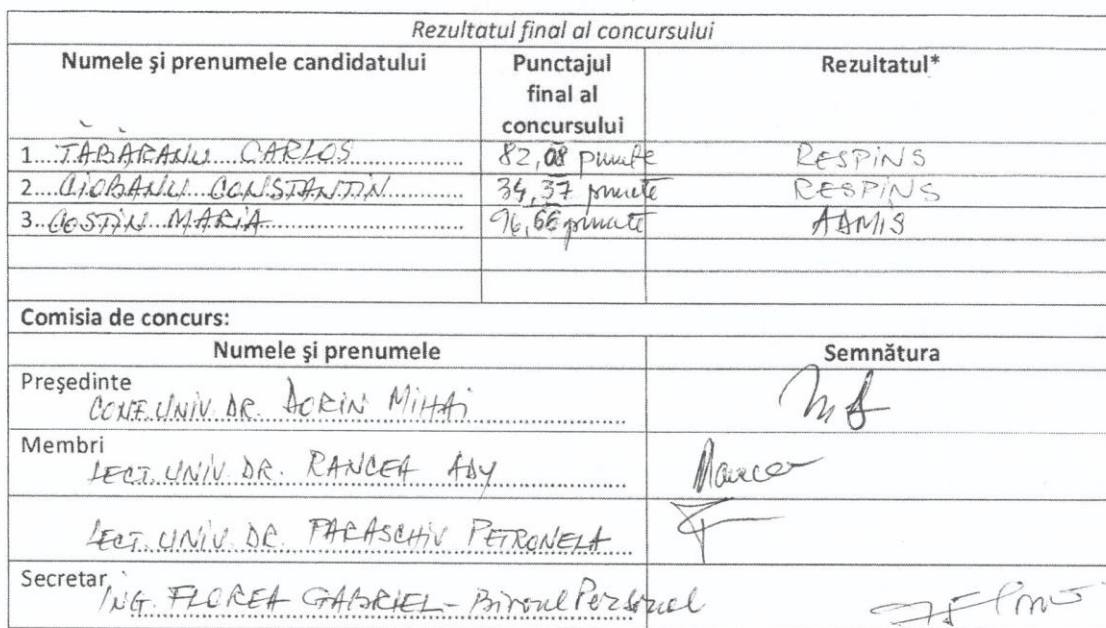 Rezultatul final al concursului
Numele şi prenumele candidatului
Punctajul final al concursului
Rezultatul*
1...TĂBĂRANU CARLOS 82,08 puncte RESPINS
2...CIOBANU CONSTANTIN 34,37 puncte RESPINS
3...COSTIN MARIA 96,66 puncte ADMIS
Comisia de concurs:
Numele şi prenumele Semnătura
Preşedinte
CONF. UNIV. DR. DORIN MIHAI
Membri
LECT. UNIV. DR. RANCEA ADY
LECT. UNIV. DR. PARASCHIV PETRONELA
Secretar
ING. FLOREA GABRIEL - Biroul Personal